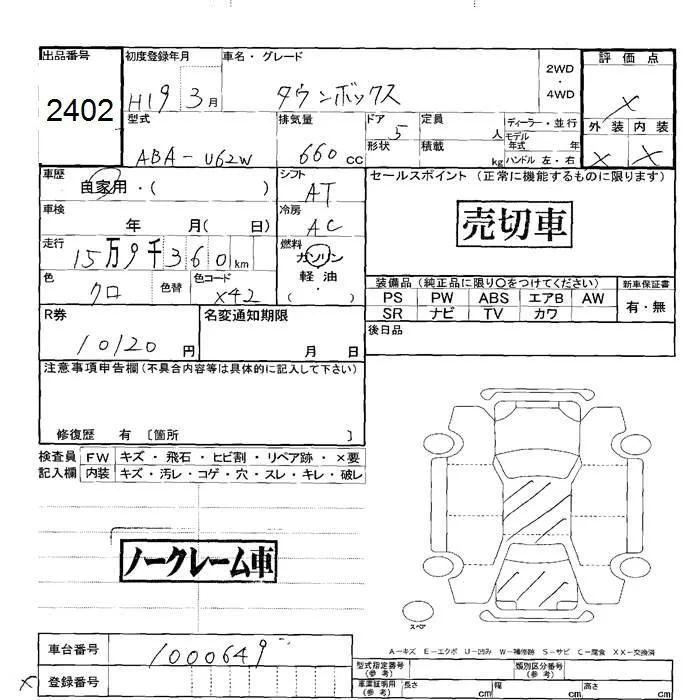 出品番号 初度登録年月 車名・グレード 2WD・4WD 評価点
2402 H19 3月 タウンボックス ×
型式 排気量 ドア 定員 ディーラー・並行 外装 内装
ABA-U62W 660cc 5 人 モデル年式 年 × ×
形状 積載 kg ハンドル 左・右
車歴 シフト セールスポイント (正常に機能するものに限ります)
自家用・( ) AT
売切車
車検 冷房
年 月( 日) AC
走行 燃料
15万9千360km ガソリン
軽油
( ・ )
色 色替 色コード
クロ X42
装備品 (純正品に限り○をつけてください) 新車保証書
PS PW ABS エアB AW 有・無
SR ナビ TV カワ
R券 名変通知期限 後日品
10120円 月 日
注意事項申告欄(不具合内容等は具体的に記入して下さい)
修復歴 有 [箇所 ]
検査員 FW キズ・飛石・ヒビ割・リペア跡・×要
記入欄 内装 キズ・汚レ・コゲ・穴・スレ・キレ・破レ
ノークレーム車
スペア
A-キズ E-エクボ U-凹み W-補修跡 S-サビ C-腐食 XX-交換済
車台番号 1000649
登録番号
×
型式指定番号(参考) 類別区分番号(参考)
車庫証明用(参考) 長さ cm 幅 cm 高さ cm